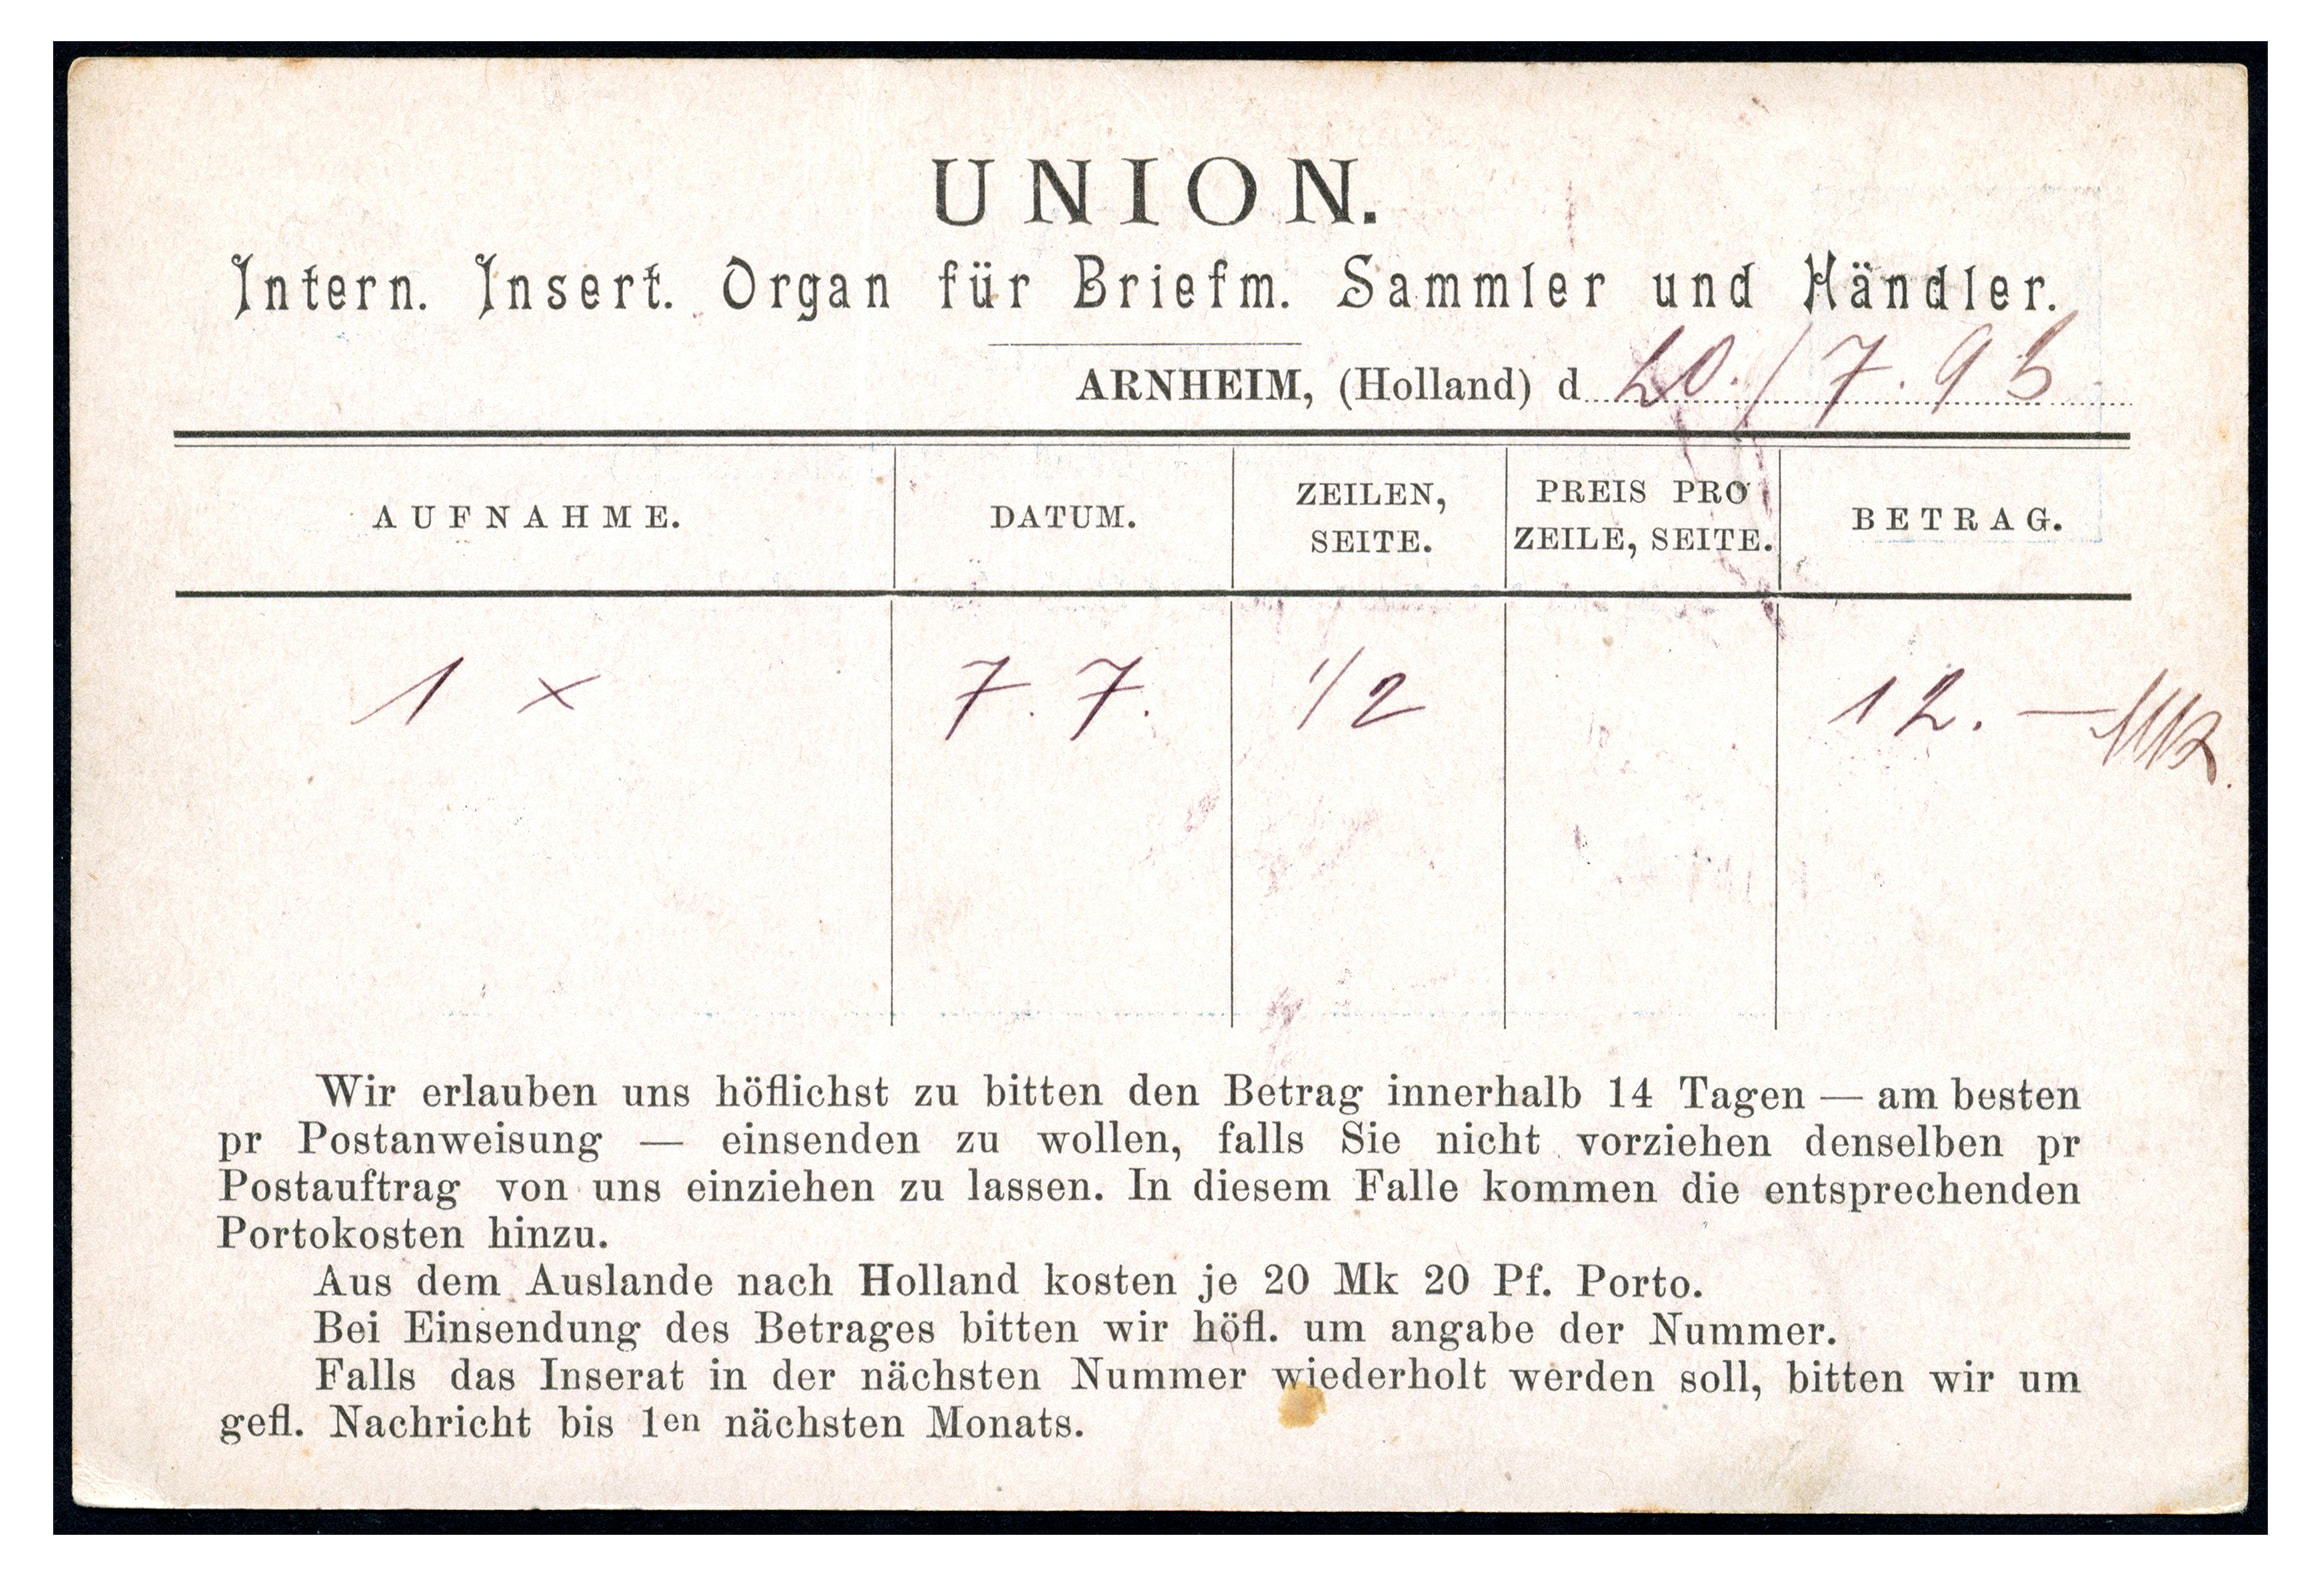 UNION.
Intern. Insert. Organ für Briefm. Sammler und Händler.
ARNHEIM, (Holland) d 20./7.95
AUFNAHME. DATUM. ZEILEN, SEITE. PREIS PRO ZEILE, SEITE. BETRAG.
1 × 7.7. 1/2 12.—Mk.
Wir erlauben uns höflichst zu bitten den Betrag innerhalb 14 Tagen — am besten
pr Postanweisung — einsenden zu wollen, falls Sie nicht vorziehen denselben pr
Postauftrag von uns einziehen zu lassen. In diesem Falle kommen die entsprechenden
Portokosten hinzu.
Aus dem Auslande nach Holland kosten je 20 Mk 20 Pf. Porto.
Bei Einsendung des Betrages bitten wir höfl. um angabe der Nummer.
Falls das Inserat in der nächsten Nummer wiederholt werden soll, bitten wir um
gefl. Nachricht bis 1en nächsten Monats.